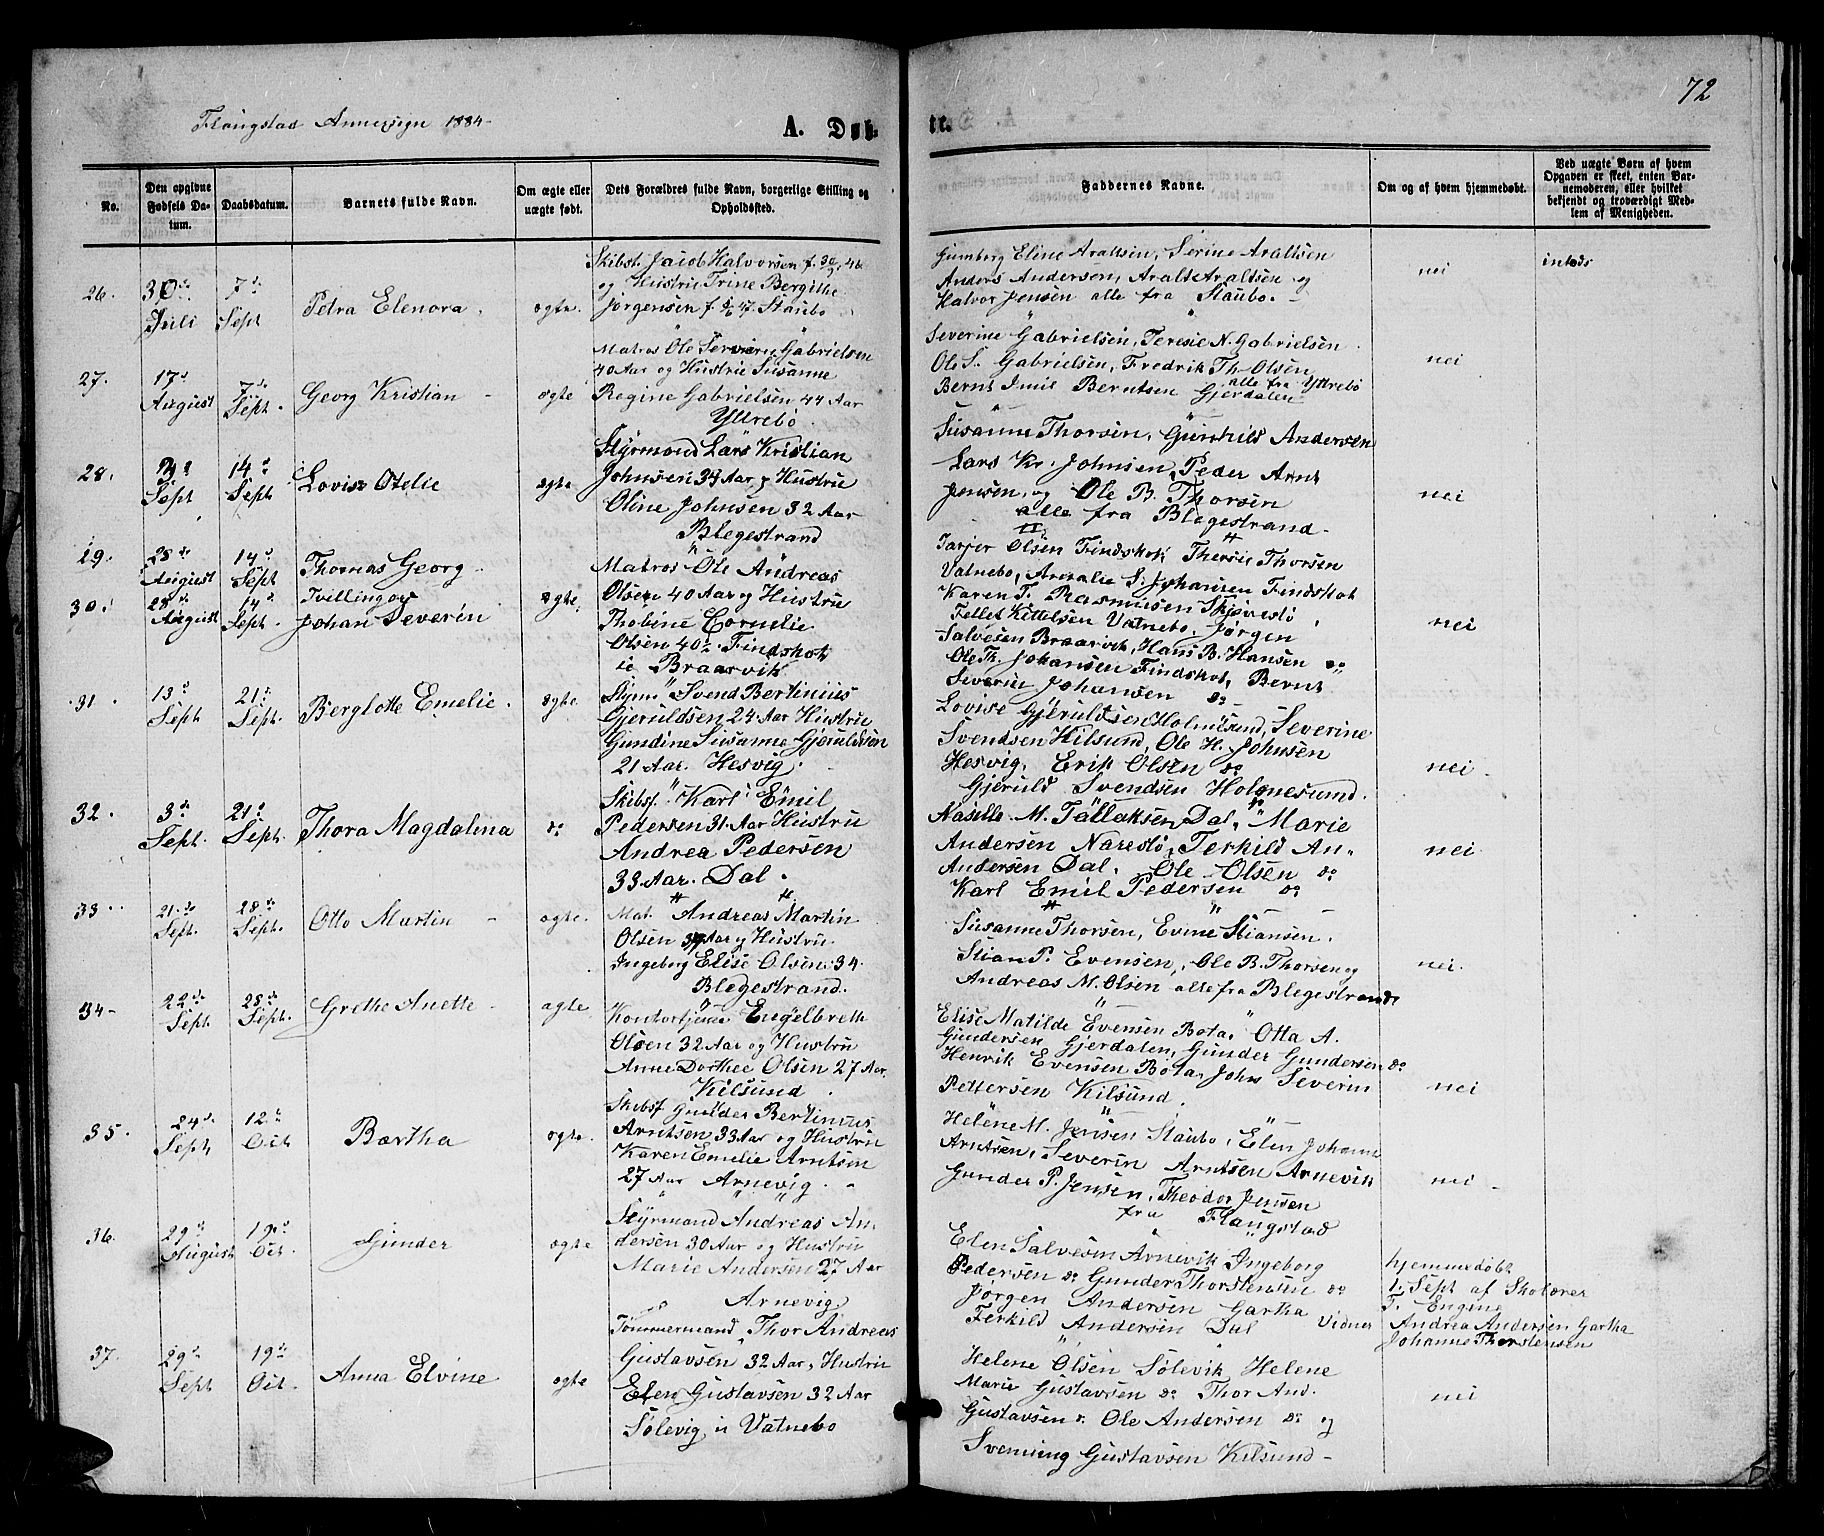 72
Flangstad Annexsogn 1884-
A. Døb-
te.
No.
Den opgivne Fødsels Datum.
Daabsdatum.
Barnets fulde Navn.
Om ægte eller uægte født.
Dets Forældres fulde Navn, borgerlige Stilling og Opholdssted.
Faddernes Navne.
Om og af hvem hjemmedøbt.
Ved uægte Børn af hvem Opgaven er skeet, enten Barnemoderen, eller hvilket bekjendt og troværdigt Medlem af Menigheden.
26. 30 Juli 7 Sept Petra Elenora. ægte.
Skibsf. Jacob Halvorsen f. 46
og Hustru Trine Bergithe
Jørgensen f. 47. Staubo
Gumborg Eline Araltsen, Serine Araltsen
Anders Andersen, Aralt Araltsen og
Halvor Jensen alle fra Staubo.
nei
intets
27. 17 August 7 Sept. Georg Kristian - ægte
Matros Ole Severin Gabrielsen
40 Aar og Hustru Susanne
Regine Gabrielsen 44 Aar
Yttrebø
Severine Gabrielsen, Teresie N. Gabrielsen
Ole S. Gabrielsen, Fredrik Th. Olsen
alle fra Yttrebø
Bernt Imil Berntsen Gjerdalen
nei
28. Sept 14 Sept Lovise Otelie ægte
Styrmand Lars Kristian
Johnsen 34 Aar og Hustru
Oline Johnsen 32 Aar
Blegestrand
Susanne Thorsen, Gunhild Andersen
Lars Kr. Johnsen, Peder Arnt
Jensen, og Ole B. Thorsen
alle fra Blegestrand
nei
29. 28 August 14 Sept Thomas Georg
Tvillinger
30. 28 August 14 Sept. Johan Severin ægte
Matros Ole Andreas
Olsen 40 Aar og Hustru
Thobine Cornelie
Olsen 40. Findskot
i Braarvik
Tarjer Olsen Findskot Theresie Thorsen
Vatnebo, Amalie S. Johansen Findskot
Karen T. Rasmussen Skjævesto
Fellef Kittelsen Vatnebo, Jørgen
Salvesen Braarvik, Hans B. Hansen do
Ole Th. Johansen Findskot, Bernt
Severin Johansen do
nei
31. 13 Sept 21 Sept. Berglotte Emelie. ægte.
Styrm Svend Bertinius
Gjeruldsen 24 Aar Hustru
Gundine Susanne Gjeruldsen
21 Aar. Hesvig.
Lovise Gjeruldsen Holmesund, Severine
Svendsen Kilsund, Ole H. Johnsen
Hesvig, Erik Olsen do
Gjeruld Svendsen Holmesund.
nei
32. 3 Sept. 21 Sept. Thora Magdalina do
Skibsf. Karl Emil
Pedersen 31 Aar Hustru
Andrea Pedersen
33 Aar. Dal.
M. Tallaksen Dal, Marie
Andersen Narestø, Terkild An-
Andersen Dal. Ole Olsen do
Karl Emil Pedersen do
nei
33. 21 Sept. 28 Sept. Otto Martin - ægte.
Mat. Andreas Martin
Olsen 34 Aar og Hustru
Ingeborg Elise Olsen 34
Blegestrand.
Susanne Thorsen, Evine Stiansen.
Stian P. Evensen, Ole B. Thorsen og
Andreas M. Olsen alle fra Blegestrand
nei.
34- 22 Sept. 28 Sept. Grethe Anette ægte
Engelbreth
Olsen 32 Aar og Hustru
Anne Dorthee Olsen 27 Aar
Kilsund.
Elise Matilde Evensen Bota, Otta A.
Gundersen Gjerdalen, Gunder Gundersen do
Henrik Evensen Bota, John Severin
Pettersen Kilsund.
nei
35. 24 Sept 12 Oct Bærtha ægte.
Skibsf Gunder Bertinius
Arntsen 33 Aar og Hustru
Karen Emelie Arntsen
27 Aar Arnevig.
Helene M. Jensen Staubo, Elen Johanne
Arntsen, Severin Arntsen Arnevik
Gunder P. Jensen, Theodor Jensen
fra Flangstad
nei
36. 29 August 19 Oct. Gunder ægte
Styrmand Andreas An-
dersen 30 Aar og Hustru
Marie Andersen 27 Aar
Arnevig
Elen Salvesen Arnevik Ingeborg
Pedersen do Gunder Thorstensen do
Jørgen Andersen Gartha
Terkild Andersen Dal Vidner
hjemmedøbt
1. Sept af Skolærer
T. Engene
Andrea Andersen Gartha
Johanne Thorstensen
37. 29 Sept 19 Oct. Anna Elvine ægte
Tømmermand, Thor Andreas
Gustavsen 32 Aar, Hustru
Elen Gustavsen 32 Aar
Sølevig i Vatnebo
Helene Olsen Sølevik Helene
Marie Gustavsen do Thor And.
Gustavsen. Ole Andersen do og
Svenning Gustavsen Kilsund-
nei